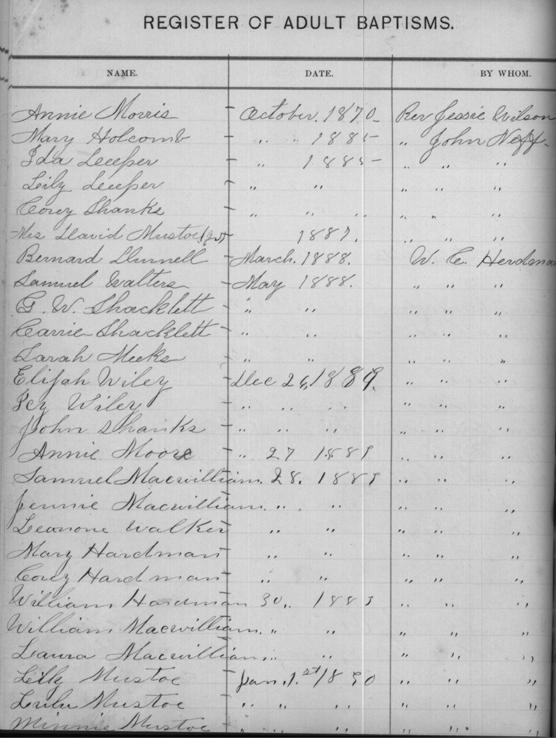 REGISTER OF ADULT BAPTISMS.
NAME. DATE. BY WHOM.
Annie Morris - October, 1870 - Rev Jessie Wilson
Mary Holcomb - " " 1885 " John Neff.
Ida Leeper - " 1885 - " " "
Lily Leeper - " " " " "
Corey Shanks " " " " " "
Mrs David Mustoe 1887. " " "
Bernard Dunnell - March. 1888. W. C. Herdman
Samuel Walters - May 1888. " " "
G. W. Shacklett - " " " " "
Carrie Shacklett - " " " " "
Sarah Meeks - " " " " "
Elijah Wiley - Dec 26, 1889. " " "
Wiley - " " " " " "
John Shanks - " " " " " "
Annie Moore - " 27 1889 " " "
Samuel Macwilliam. 28. 1889 " " "
Jennie Macwilliam. " " " " "
Walker - " " " " "
Mary Hardman - " " " " "
Corey Hardman - " " " " "
William Hardman 30. 1889 " " "
William Macwilliam. " " " " "
Laura Macwilliam. " " " " "
Lilly Mustoe - Jan. 1.st 1890 " " "
Lulu Mustoe - " " " " " "
Minnie Mustoe - " " " " " "